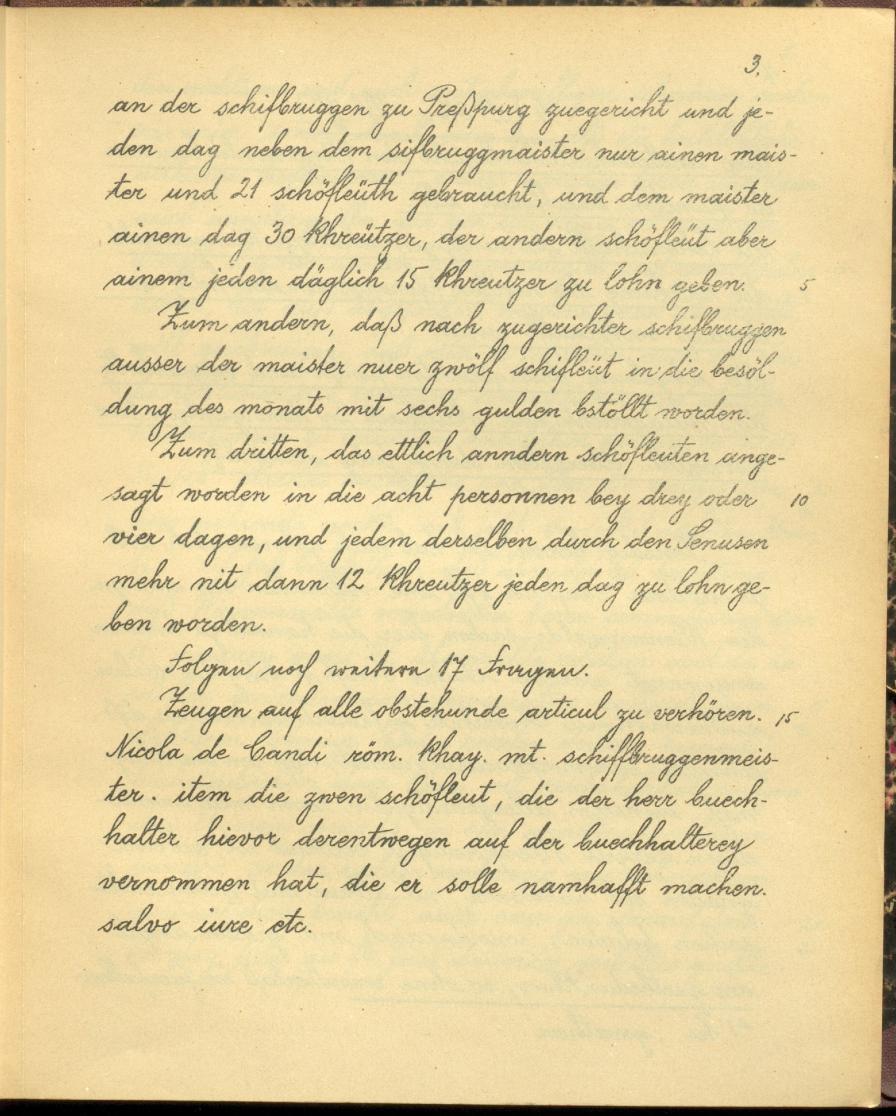 3.
an der schifbruggen zu Preßpurg zuegericht und je-
den dag neben dem sifbruggmaister nur ainen mais-
ter und 21 schöfleüth gebraucht, und dem maister
ainen dag 30 Khreützer, der andern schöfleüt aber
ainem jeden däglich 15 Khreutzer zu lohn geben. 5
Zum andern, daß nach zugerichter schifbruggen
ausser der maister nuer zwölf schifleüt in die besöl-
dung des monats mit sechs gulden bstöllt worden.
Zum dritten, das ettlich anndern schöfleuten ange-
sagt worden in die acht personnen bey drey oder 10
vier dagen, und jedem derselben durch den Senusen
mehr nit dann 12 Khreutzer jeden dag zu lohn ge-
ben worden.
Folgen noch weitere 17 Fragen.
Zeugen auf alle obstehunde articul zu verhören. 15
Nicola de Candi röm. Khay. mt. schiffbruggenmeis-
ter. item die zwen schöfleut, die der herr buech-
halter hievor derentwegen auf der buechhalterey
vernommen hat, die er solle namhafft machen.
salvo iure etc.